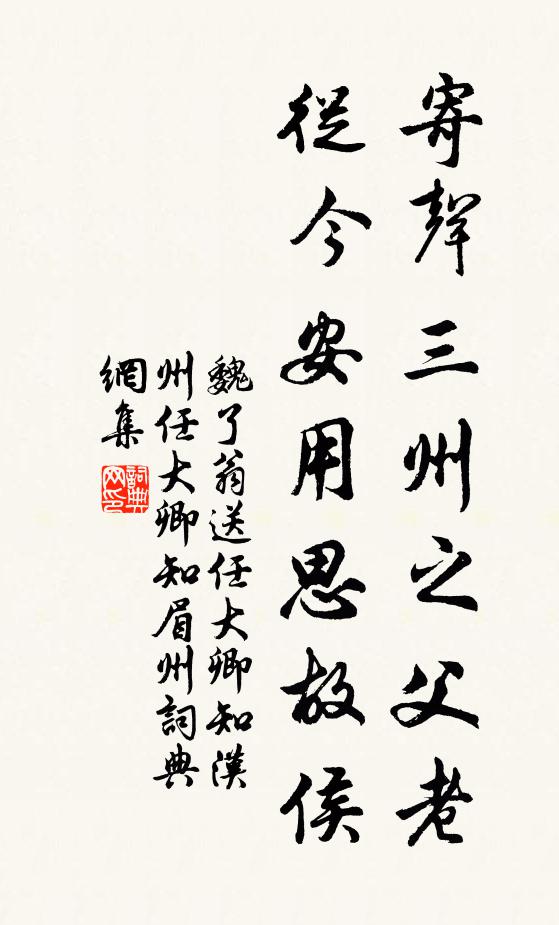 寄聲三州之父老
從今安用思故侯
魏了翁送任大卿知漢
州任大卿知眉州詞典
網集
詞典
网印